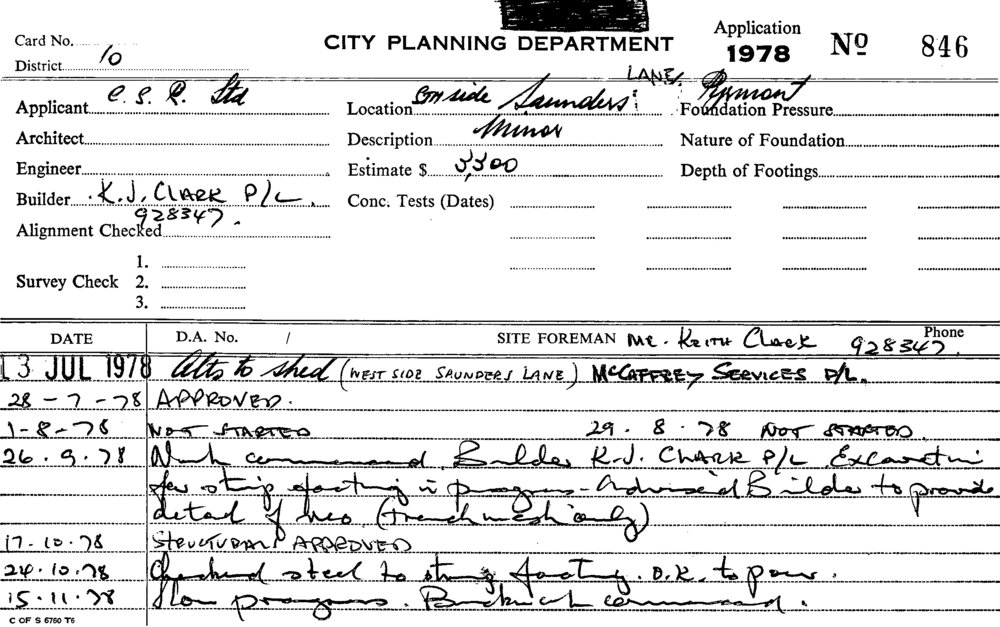 Application
Card No. CITY PLANNING DEPARTMENT 1978 No 846
District 10
LANE, Pyrmont
Applicant C. S. R. Ltd Location side Saunders Foundation Pressure
Architect Description Minor Nature of Foundation
Engineer Estimate $ 3,300 Depth of Footings
Builder K.J. CLARK P/L. Conc. Tests (Dates)
928347.
Alignment Checked
1.
Survey Check 2.
3.
DATE D.A. No. / SITE FOREMAN Mr. KEITH Clark Phone 928347.
13 JUL 1978 Alts to shed (WEST SIDE SAUNDERS LANE) McCAFFREY SERVICES P/L.
28-7-78 APPROVED.
1-8-78 NOT STARTED 29.8.78 NOT STARTED.
26.9.78 Work commenced. Builder K.J. CLARK P/L Excavation
for strip footing in progress - Advised Builder to provide
detail of (trench mesh only)
17.10.78 STRUCTURAL APPROVED
24.10.78 Checked steel to strip footing. O.K. to pour.
15.11.78 Slow progress. Brickwork commenced.
C OF S 6760 T6